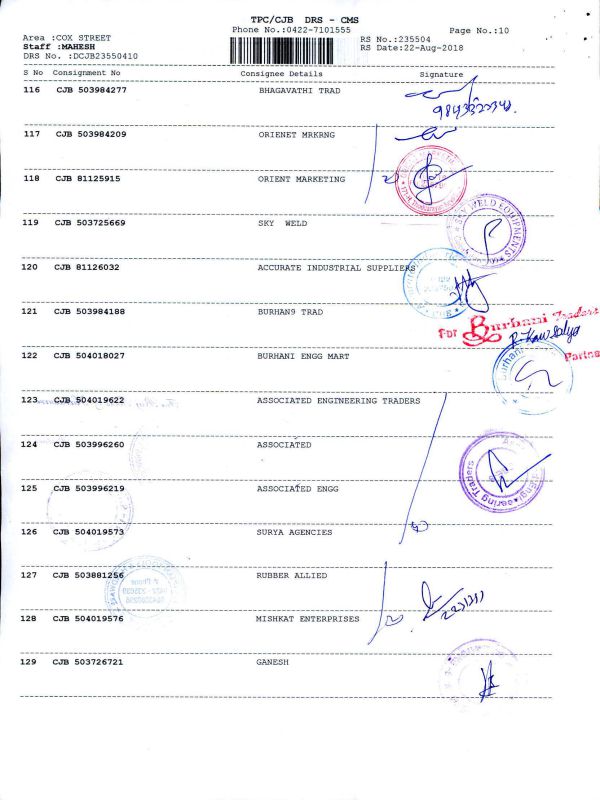 TPC/CJB DRS - CMS
Phone No.:0422-7101555
Page No.:10
Area :COX STREET
RS No.:235504
Staff :MAHESH
RS Date:22-Aug-2018
DRS No. :DCJB23550410
S No Consignment No Consignee Details Signature
116 CJB 503984277 BHAGAVATHI TRAD
117 CJB 503984209 ORIENET MRKRNG
118 CJB 81125915 ORIENT MARKETING
119 CJB 503725669 SKY WELD
SKY WELD EQUIPMENTS
120 CJB 81126032 ACCURATE INDUSTRIAL SUPPLIERS
121 CJB 503984188 BURHAN9 TRAD
For Burhani Traders
R. Kowsalya
122 CJB 504018027 BURHANI ENGG MART
Burhani
123 CJB 504019622 ASSOCIATED ENGINEERING TRADERS
124 CJB 503996260 ASSOCIATED
Engineering Traders
125 CJB 503996219 ASSOCIATED ENGG
126 CJB 504019573 SURYA AGENCIES
127 CJB 503881256 RUBBER ALLIED
128 CJB 504019576 MISHKAT ENTERPRISES
129 CJB 503726721 GANESH